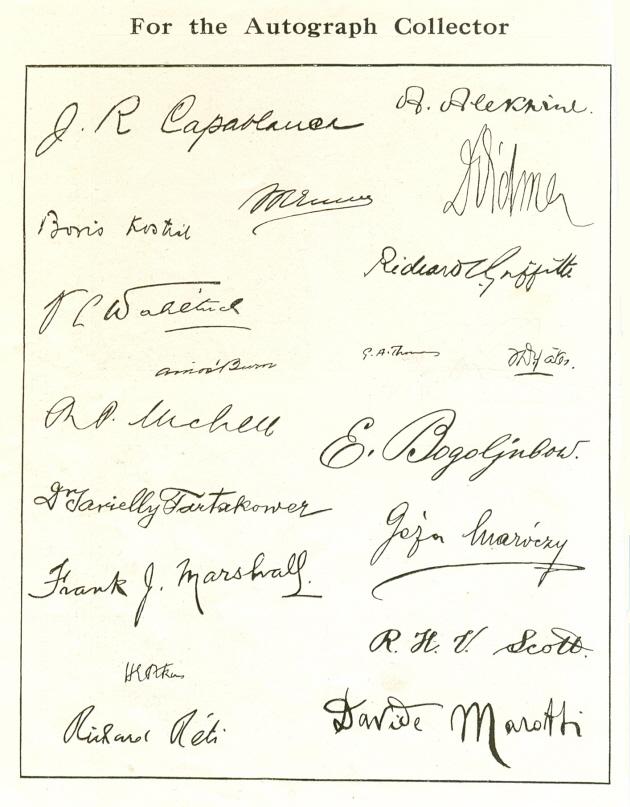 For the Autograph Collector
J. R Capablanca
A. Alekhine.
MEuwe
MVidmar
Boris Kostić
Richard C Griffith
V L Wahltuch
Amos Burn
G. A. Thomas
FDYates.
R. P. Michell
E. Bogoljubow.
Dr Savielly Tartakower
Géza Maróczy
Frank J. Marshall.
R. H. V. Scott.
HEAtkins
Richard Réti
Davide Marotti